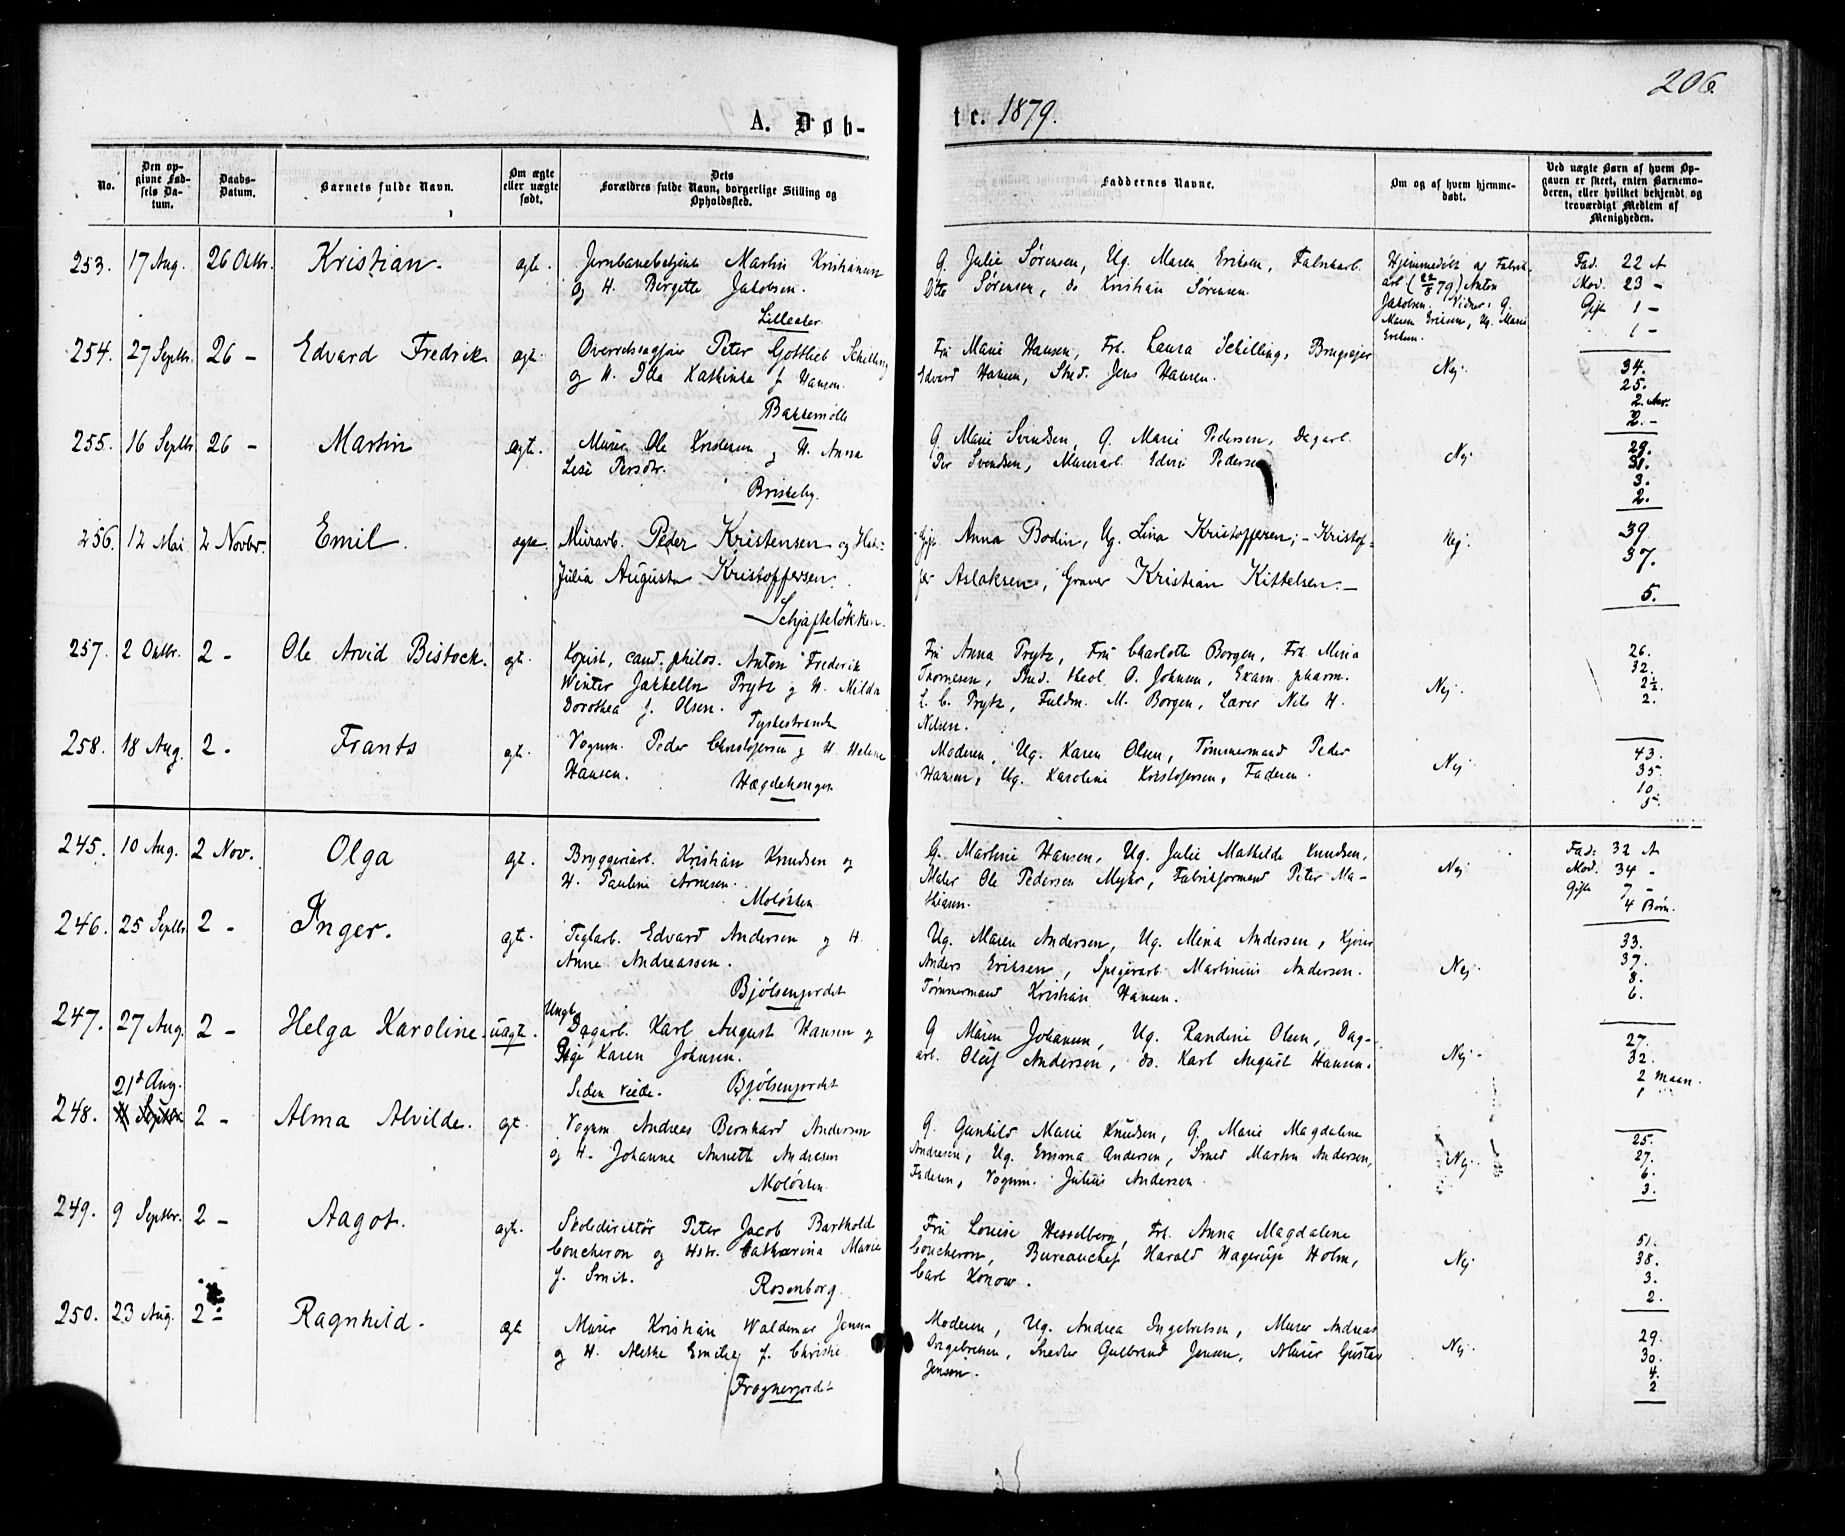 206.
A. Døb-
te. 1879.
No.
Den op-
givne Fød-
sels Da-
tum.
Daabs-
Datum.
Barnets fulde Navn.
Om ægte
eller uægte
født.
Dets
Forældres fulde Navn, borgerlige Stilling og
Opholdssted.
Faddernes Navne.
Om og af hvem hjemme-
døbt.
Ved uægte Børn af hvem Op-
gaven er skeet, enten Barnemo-
deren, eller hvilket bekjendt og
troværdigt Medlem af
Menigheden.
253. 17 Aug. 26 Oktbr. Kristian. ægte. Jernbanebetjente Martin Kristiansen
og H. Birgitte Jakobsen.
Lilleaker
G. Julie Sørensen, Ug. Maren Eriksen, Fabrikarb.
Otto Sørensen, do Kristian Sørensen.
Hjemmedøbt af Fabrik-
arb ( 79) Anton
Jakobsen. Vidner: G.
Maren Eriksen, Ug. Marie
Eriksen.
Fad. 22 A
Mod. 23 -
Gift 1 -
1 -
254. 27 Septbr. 26 - Edvard Fredrik ægt. Overretssagfører Peter Gottlieb Schilling
og H. Ida Kathinka f. Hansen.
Bakkemølle
Fru Marie Hansen, Frk. Laura Schilling, Brugseier
Edvard Hansen, Stud. Jens Hansen.
Nej.
34.
25.
2.
2. -
255. 16 Septbr 26 - Martin ægt. Murer Ole Kristensen og H. Anna
Lise Persdtr.
Briskeby.
G Marie Svendsen, G. Marie Pedersen, Dagarb.
Per Svendsen, Murerarb. Edvin Pedersen
Nej
29.
31.
3.
2.
256. 12 Mai 2 Novbr. Emil. ægte. Murarb. Peder Kristensen og
Julia Augusta Kristoffersen.
Schjafteløkken.
Gift Anna Bodin, Ug. Lina Kristoffersen; - Kristof-
fer Aslaksen, Graver Kristian Kittelsen. -
Nej.
39.
37.
5.
257. 2 Oktbr. 2 - Ole Arvid Bistock. ægt. Kopist, cand. philos. Anton Frederik
Winter Jakhelln Prytz og H. Milda
Dorothea f. Olsen.
Tyskestranda
Fru Anna Prytz, Fru Charlotte Borgen, Frk. Mina
Thornesen, Stud. theol. O. Johnsen, Exam. pharm.
L. C. Prytz, Fuldm. M. Borgen, Lærer Nils H.
Nilsen.
Nej.
26.
32.
2½.
2.
258. 18 Aug. 2 - Frants ægt. Vognm. Peder Christofersen og H. Helene
Hansen.
Hægdehougen
Moderen, Ug. Karen Olsen, Tømmermand Peder
Hansen, Ug. Karoline Kristofersen, Faderen.
Nej
43.
35.
10.
5.
245. 10 Aug. 2 Nov. Olga ægt. Bryggeriarb. Kristian Knudsen og
H. Pauline Arnesen.
Moløkken
G. Martine Hansen, Ug. Julie Mathilde Knudsen,
Maler Ole Pedersen Myhr, Fabrikformand Peter Ma-
thisen.
Nej
Fad: 32 A
Mod. 34 -
Gifte 7 -
4 Børn.
246. 25 Septbr 2 - Inger. ægt. Teglarb. Edvard Andersen og H.
Anne Andreassen.
Bjølsenjordet
Ug. Maren Andersen, Ug. Mina Andersen, Kjører
Anders Eriksen, Spigerarb. Martinius Andersen.
Tømmermand Kristian Hansen.
Nej
33.
37.
8.
6.
247. 27 Aug. 2 - Helga Karoline. uægt. Ungk.
Dagarb. Karl August Hansen og
Pige Karen Johnsen.
Siden viede. Bjølsenjordet
G Maren Johansen, Ug. Randine Olsen, Dag-
arb. Oluf Andersen, do. Karl August Hansen.
Nej.
27.
32.
2 maan.
1
248. 21d Aug. 2 - Alma Alvilde. ægt. Vognm. Andreas Bernhard Andersen
og H. Johanne Annette Andresen
Moløkken
G. Gunhild Marie Knudsen, G. Marie Magdalene
Andresen, Ug. Emma Andersen, Smed Martin Andersen,
Faderen, Vognm. Julius Andersen.
Nej.
25.
27.
6.
3.
249. 9 Septbr. 2 - Aagot. ægt. Skoledirektør Peter Jacob Barthold
Coucheron og Hstr. Catharina Marie
f. Smit.
Rosenborg.
Fru Louise Hesselberg, Frk. Anna Magdalene
Coucheron, Bureauchef Harald Hagerup Holm,
Carl Konow.
Nej
51.
38.
3.
2.
250. 23 Aug. 2 - Ragnhild. ægt Murer Kristian Waldemar Jensen
og H. Alethe Emilie f. Christie.
Frognerjordet
Moderen, Ug. Andrea Ingebretsen, Murer Andreas
Ingebretsen, Snedker Gulbrand Jensen, Murer Gustav
Jensen.
Nej.
29.
30.
4.
2